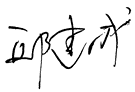 邱建成